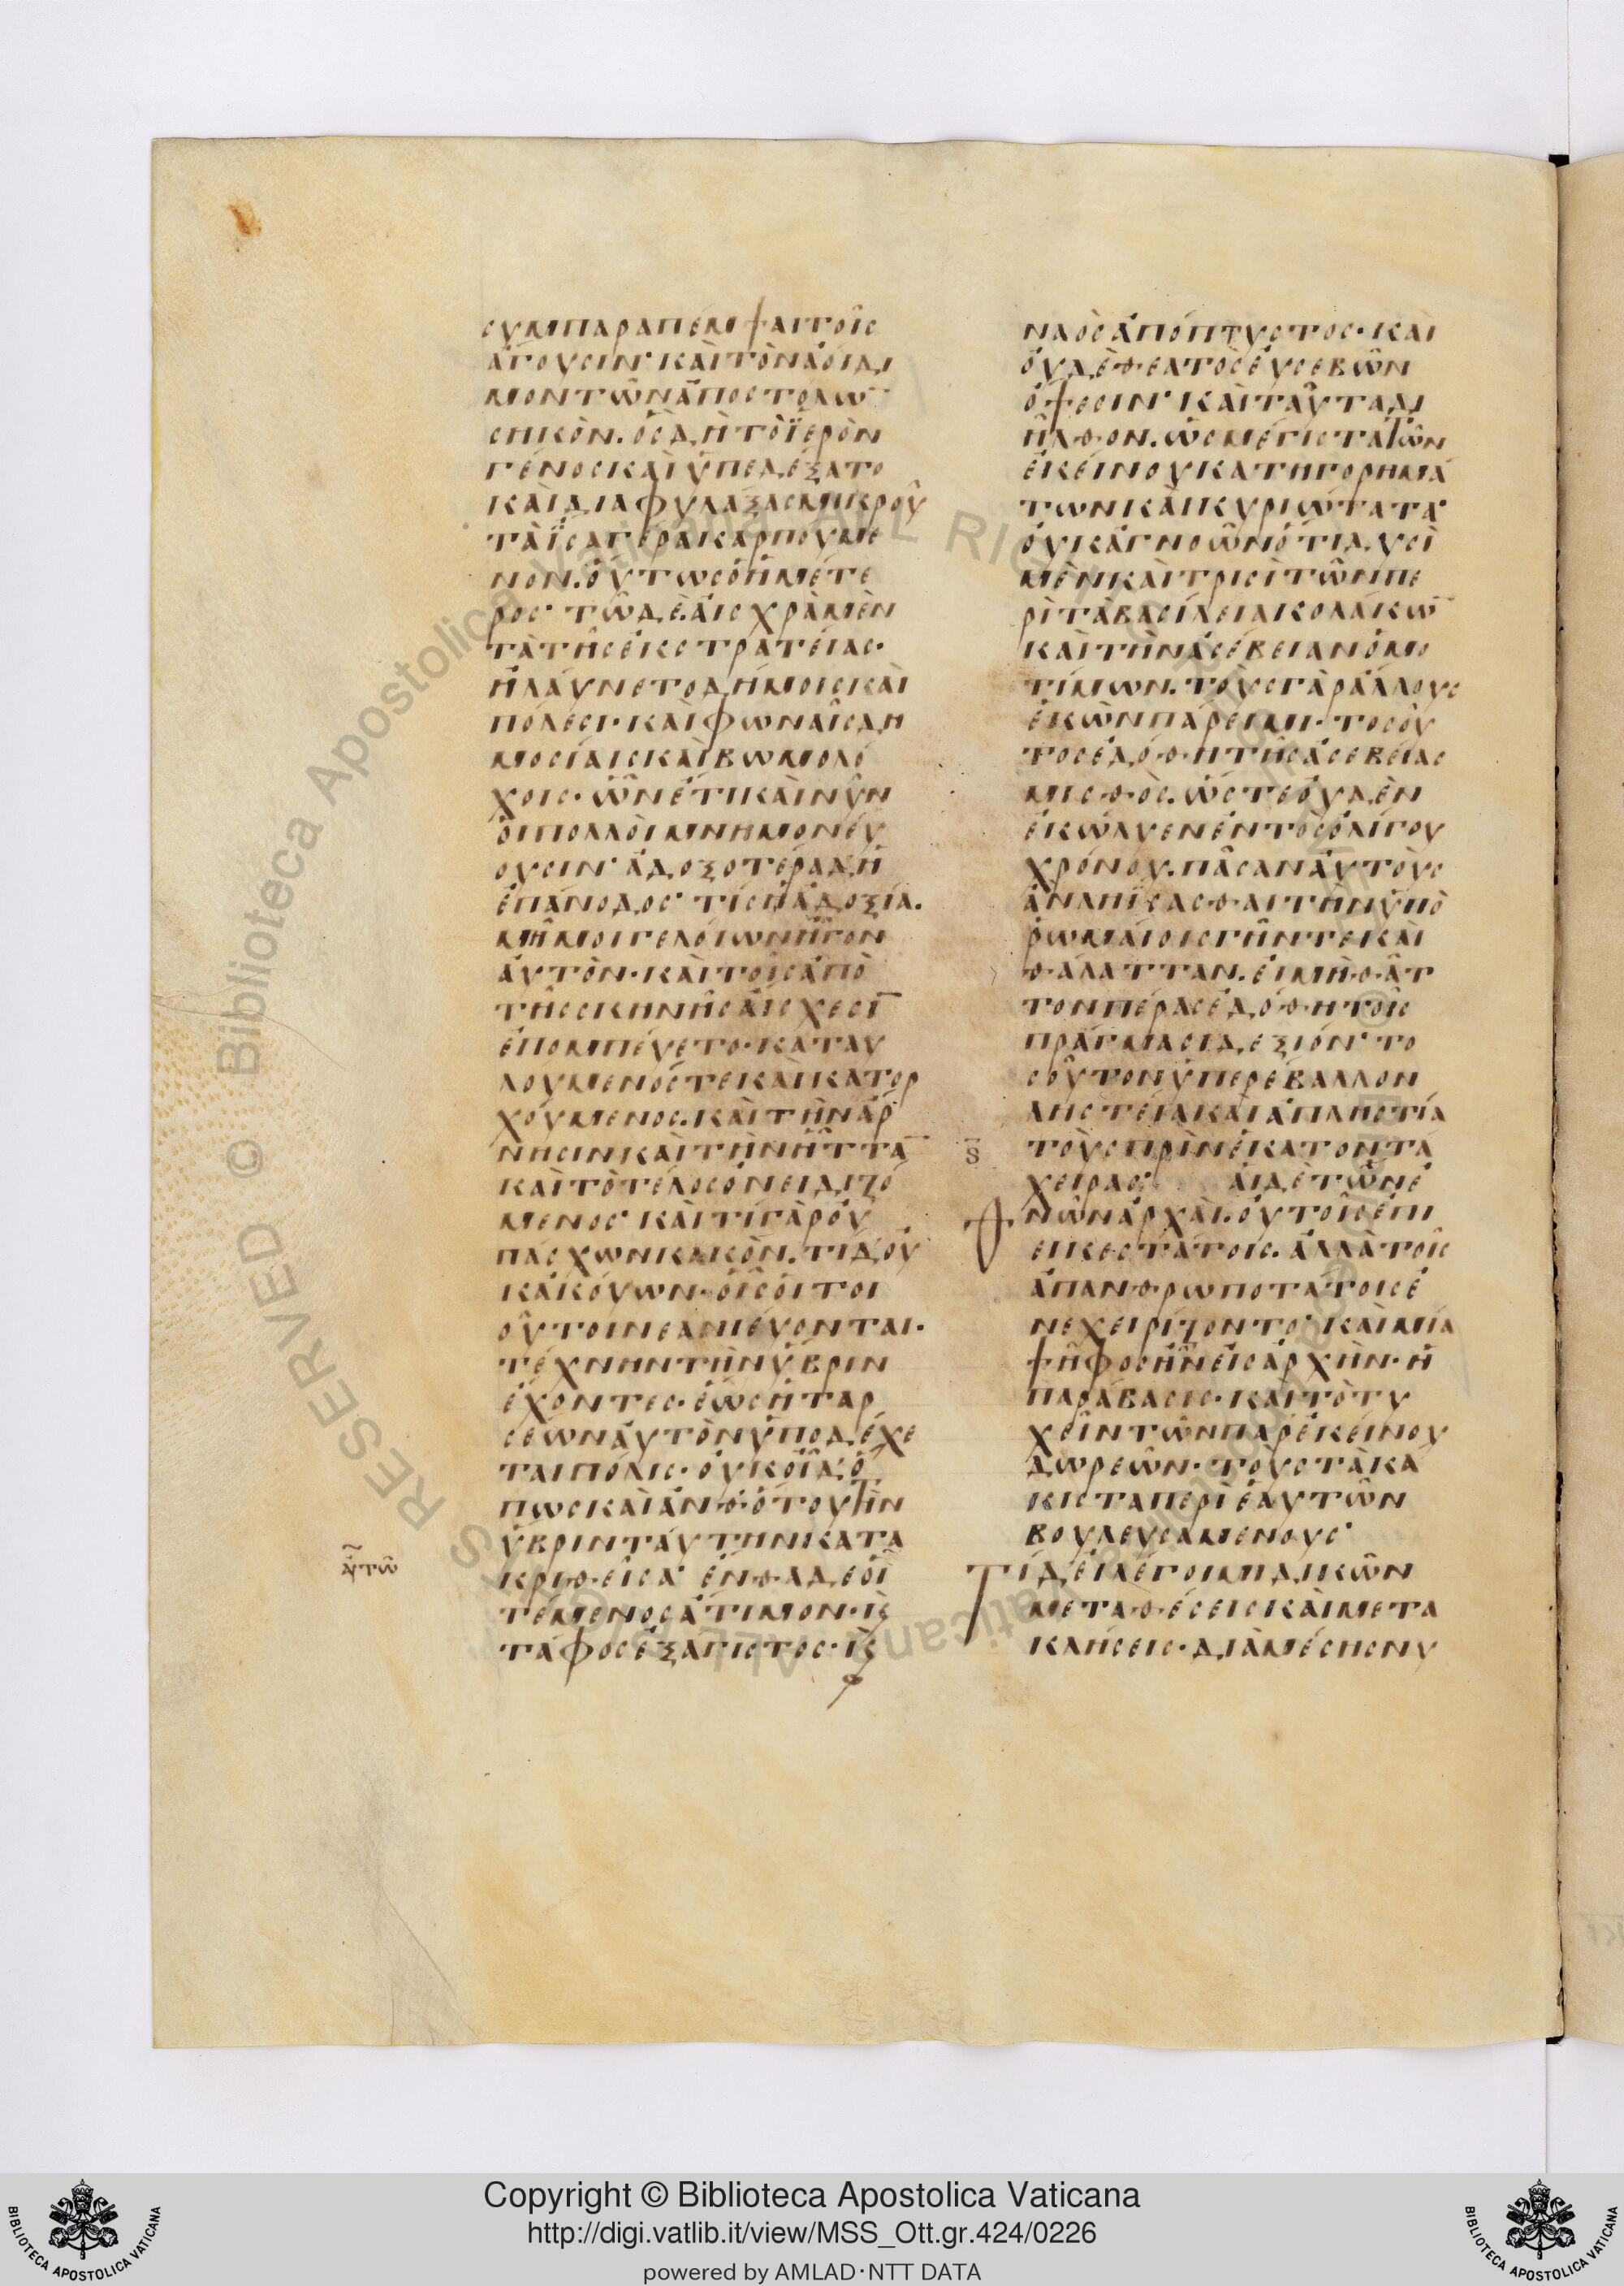 συμπαραπέμψαι τοῖς
ἄγουσιν· καὶ τὸν ἀοίδι
μον τῶν ἀποστόλω̅
σηκὸν. ὃς δὴ τὸ ἱερὸν
γένος καὶ ὑπεδέξατο
καὶ διαφυλάξας μικροῦ
τὰ ἴσα γέρα καρπούμε
νον. οὕτως ὁ ἡμέτε
ρος· τῷ δὲ αἰσχρὰ μὲν
τὰ τῆς ἐκστρατείας·
ἠλαύνετο δήμοις καὶ
πόλεσι· καὶ φωναῖς δη
μοσίαις καὶ βωμολό
χοις· ὧν ἔτι καὶ νῦν
οἱ πολλοὶ μνημονεύ
ουσιν· ἀδοξοτέρα δ' ἡ
ἐπάνοδος· τίς ἡ ἀδοξία.
μῖμοι γελοίων ἦγον
αὐτὸν· καὶ τοῖς ἀπὸ
τῆς σκηνῆς αἴσχεσι̅
ἐπομπεύετο· καταυ
λούμενός τε καὶ κατορ
χούμενος. καὶ τὴν ἄρ
νησιν καὶ τὴν ἧττα̅
καὶ τὸ τέλος ὀνειδιζό
μενος· καὶ τί γὰρ οὐ
πάσχων κακὸν. τί δ' οὐ
κ' ἀκούων· οἷς οἱ τοι
οῦτοι νεανιεύονται·
τέχνην τὴν ὕβριν
ἔχοντες· ἕως ἡ ταρ
σέων αὐτὸν ὑποδέχε
ται πόλις· οὐκ οἶδ' ὅ
πως καὶ ἀνθ' ὅτου τὴν
ὕβριν ταύτην κατα
κριθεῖσα· ἔνθα δέ οἱ
ἀυτῶ
τέμενος ἄτιμον· κ̀
τάφος ἐξάγιστος· κ̀
ναὸς ἀπόπτυστος· καὶ
οὐδὲ θεατὸς εὐσεβῶν
ὄψεσιν· καὶ ταῦτα δι
ῆλθον. ὡς μέγιστα τῶν
ἐκείνου κατηγορημά
των καὶ κυριώτατα·
οὐκ ἀγνοῶν ὅτι δυσὶ
μὲν καὶ τρισὶ τῶν πε
ρὶ τὰ βασίλεια κολάκω̅
καὶ τὴν ἀσέβειαν ὁμο
τίμων. τοὺς γὰρ ἄλλους
ἑκὼν πάρειμι· τοσοῦ
τος ἐδόθη τῆς ἀσεβείας
μισθὸς. ὥστε οὐδὲν
ἐκώλυεν ἐντὸς ὀλίγου
χρόνου. πᾶσαν αὐτοὺς
ἀνληΐσασθαι τὴν ὑπὸ
ῥωμαίοις γῆν τε καὶ
θάλατταν. εἰ μὴ θᾶτ
τον πέρας ἐδόθη τοῖς
πράγμασι δεξιόν· το
σοῦτον ὑπερέβαλλον
ληστείᾳ καὶ ἀπληστίᾳ
τοὺς πρὶν ἑκατοντά
χειρας· αἱ δὲ τῶν ἐ
θνῶν ἀρχαὶ. οὐ τοῖς ἐπι
εικεστάτοις. ἀλλὰ τοῖς
ἀπανθρωποτάτοις ἐ
νεχειρίζοντο· καὶ μία
ψῆφος ἦν εἰς ἀρχὴν· ἡ
παράβασις· καὶ τὸ τυ
χεῖν τῶν παρ' ἐκείνου
δωρεῶν· τοὺς τὰ κά
κιστα περὶ ἑαυτῶν
βουλευσαμένους·
Τί δεῖ λέγοιμι δικῶν
μεταθέσεις καὶ μετα
κλήσεις· διὰ μέσης νυ
Copyright © Biblioteca Apostolica Vaticana
http://digi.vatlib.it/view/MSS_Ott.gr.424/0226
powered by AMLAD·NTT DATA